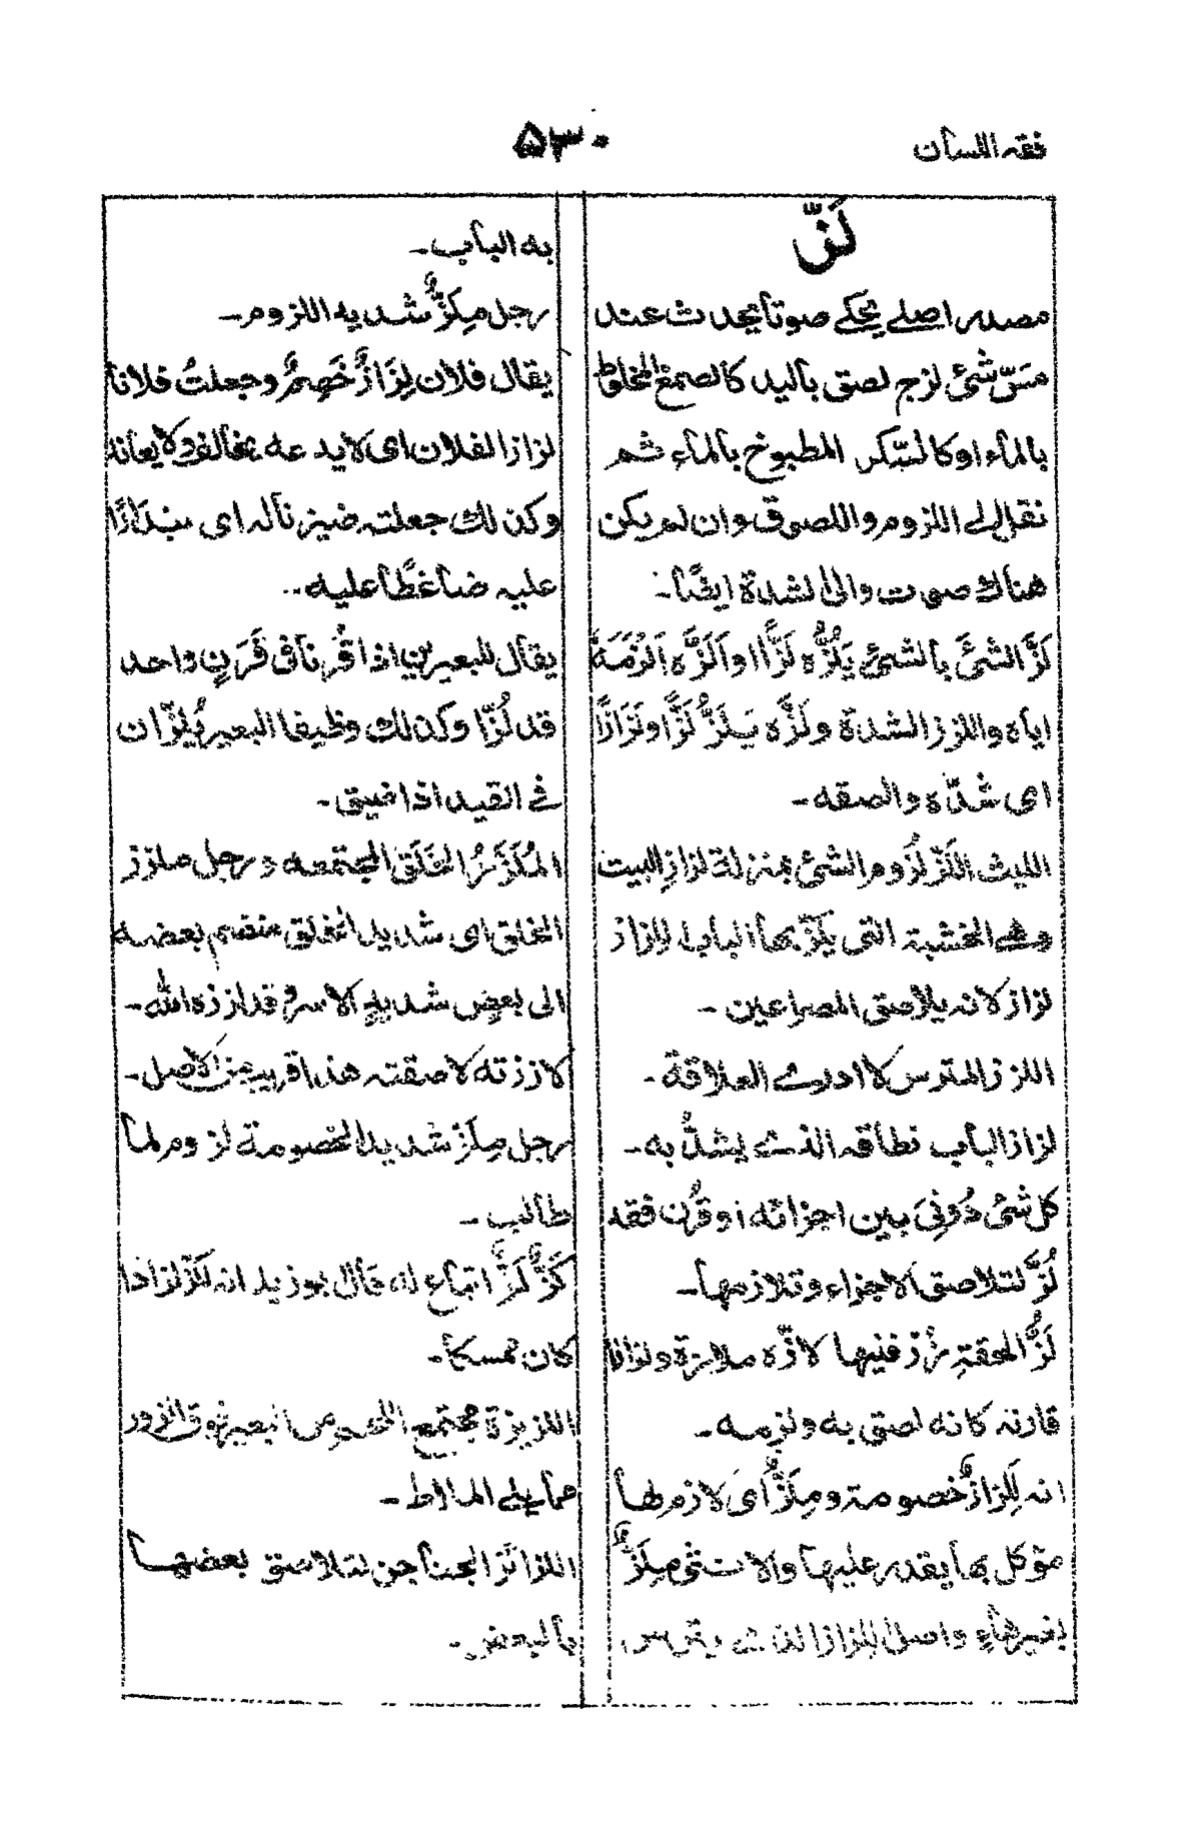 فقه اللسان
۵۳۰
لَزّ
مصدر اصلے یحکے صوتا یحدث عند
مَسّ شئ لزج لصق بالید کالصمغ المخلوط
بالماء او کالسّکر المطبوخ بالماء ثم
نقل الے اللزوم واللصوق وان لم یکن
هناك صوت والیٰ الشدة ایضًا۔
لَزَّ الشئَ بالشئِ یَلُزُّه لَزًّا والَزَّه اَلزَمَهٗ
ایاه واللزز الشدة ولَزَّه یَلَزُّ لَزًّا ولَزَازًا
ای شدّه والصقه۔
اللیث اللَّزّ لزُوم الشئ بمنزلة لزازِ البیت
وهے الخشبة التی یَلَزّ بها الباب اللزاز
لزاز لانه یلاصق المصراعین۔
اللزز المترس لا ادرے العلاقة۔
لزاز الباب نطاقه الذے یشدُّ به۔
کل شئ دُونِیَ بین اجزائه اوقُرِن فقد
لُزَّ لتلاصق الاجزاء وتلازمها۔
لَزُّ الحقةِ زرفینها لازّه ملازة ولزازا
قارنه کانه لصق به ولزمه۔
انه لَلِزازُ خصومة ومِلَزٌّ ای لازم لها
مؤکل بها یقدر علیها والانثی مِلَزٌّ
بغیر هاء واصل اللزاز الذے یترس
به الباب۔
رجل مِلَزٌّ شدید اللزوم۔
یقال فلان لِزَازٌ خَصِمٌ وجعلتُ فلانا
لزازا لفلان ای لا یدعه یخالف ولا یعاند
وکذلك جعلته ضیزنا له ای بندَارًا
علیه ضاغطًا علیه۔
یقال للبعیرین اذا قُرنا فی قَرَنٍ واحد
قد لُزّا وکذلك وظیفا البعیر یُلَزّان
فے القید اذا ضیق۔
المُلَزَّزُ الخَلقِ المجتمعه ورجل ملزز
الخلق ای شدید الخلق منضم بعضه
الی بعض شدید الاسر وقد لززه الله۔
لاززته لاصقته هذا قریب من الاصل۔
رجل مِلَزّ شدید الخصومة لزوم لما
طالب۔
کَزٌّ لَزٌّ اتباع له قال ابوزید انه لکزّ لزّ اذا
کان ممسکا۔
اللزیزة مجتمع اللحم من البعیر فوق الزور
مما یلی الملاط۔
اللزائز الجناجن لتلاصق بعضها
بالبعض۔